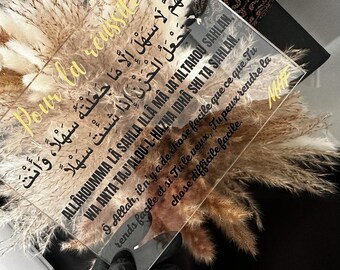 Pour la réussite
اللَّهُمَّ لَا سَهْلَ إِلَّا مَا جَعَلْتَهُ سَهْلًا وَأَنْتَ
تَجْعَلُ الْحَزْنَ إِذَا شِئْتَ سَهْلًا
ALLÂHOUMMA LÂ SAHLA ILLÂ MÂ JA'ALTAHOU SAHLAN,
WA ANTA TAJ'ALOU-L-HAZNA IDHÂ SHI'TA SAHLAN.
Ô Allah, il n'y a de chose facile que ce que Tu
rends facile et si Tu le veux, Tu peux rendre la
chose difficile facile.